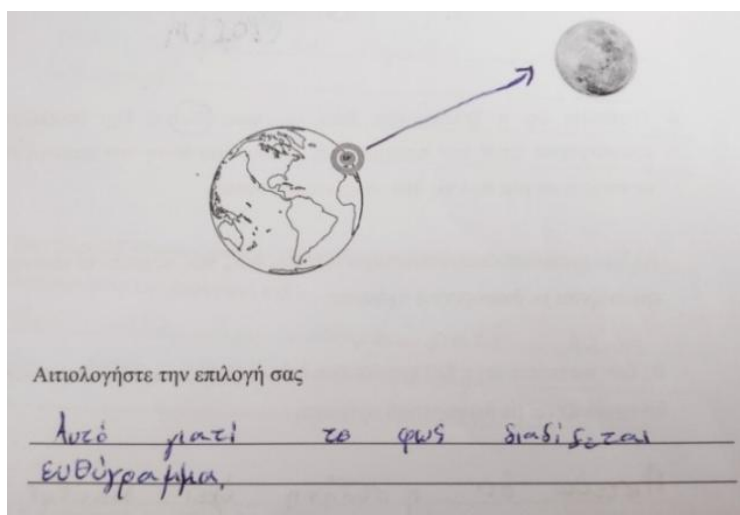 Αιτιολογήστε την επιλογή σας
Αυτό γιατί το φως διαδίδεται
ευθύγραμμα.